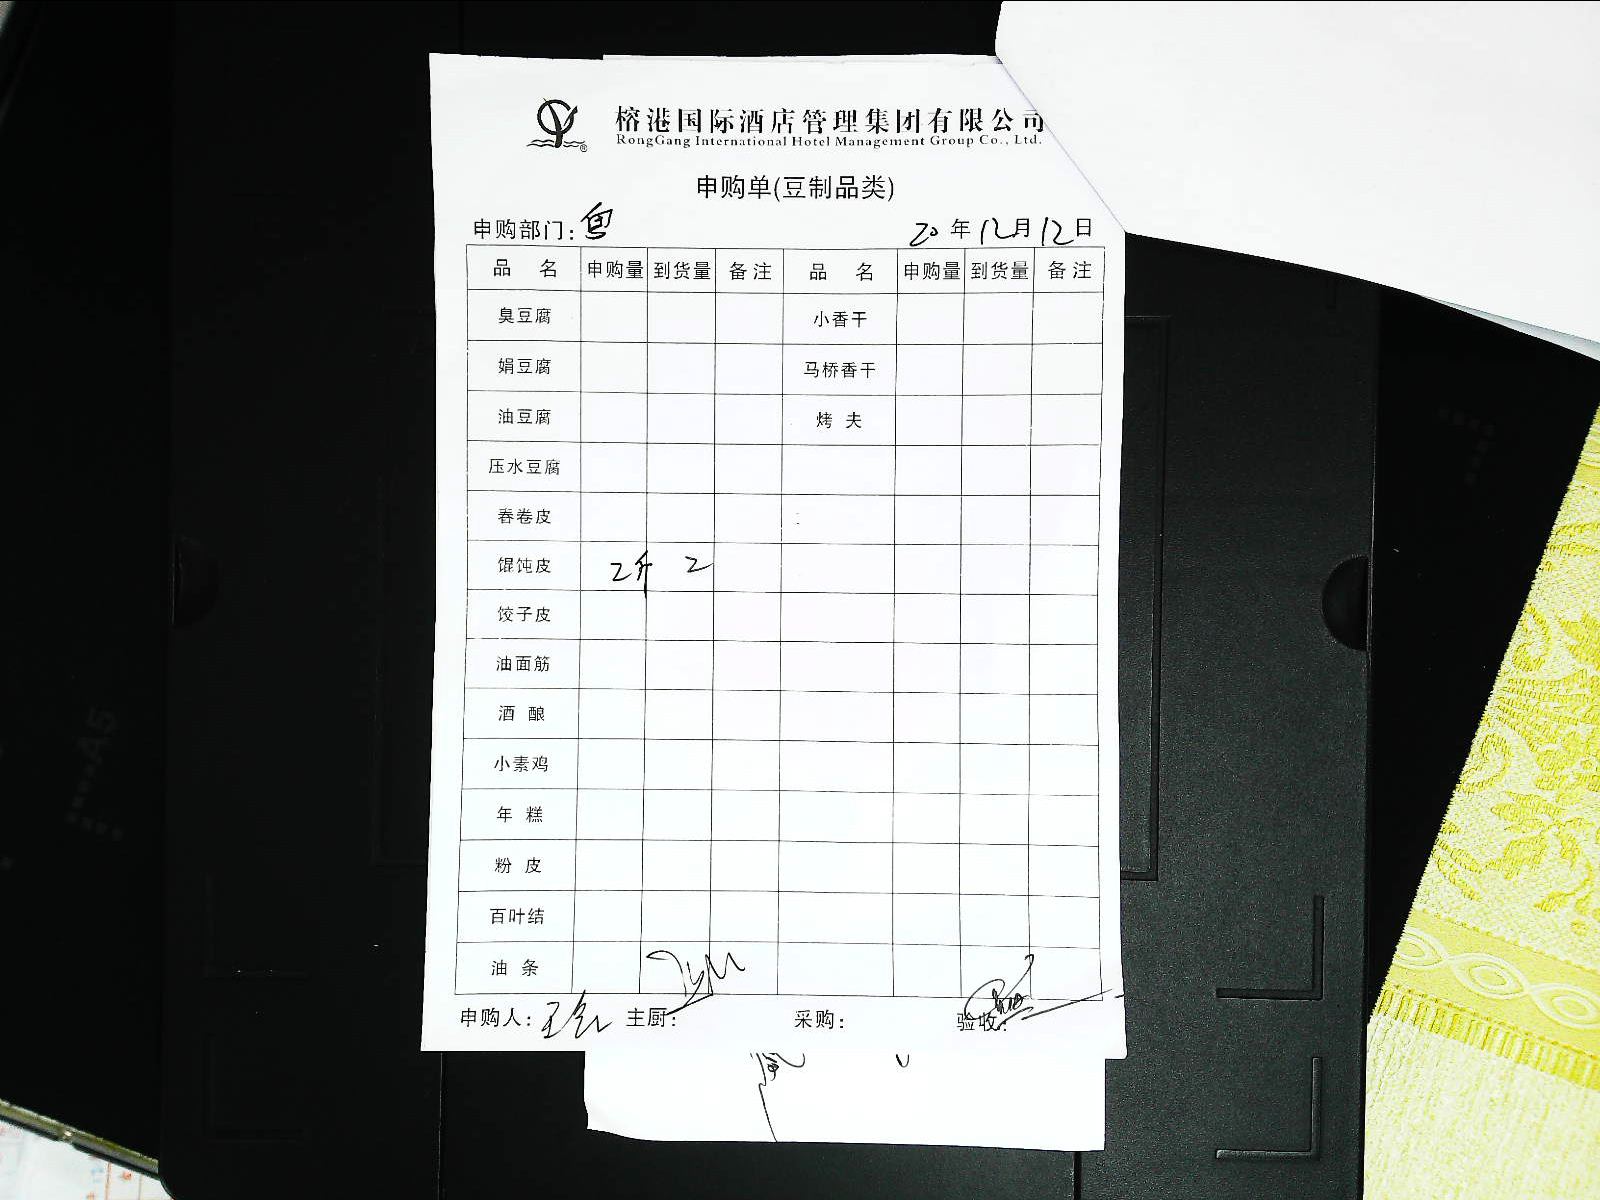 榕港国际酒店管理集团有限公司
RongGang International Hotel Management Group Co., Ltd.
申购单(豆制品类)
申购部门: 粤 20 年 12 月 12 日
品 名 申购量 到货量 备注 品 名 申购量 到货量 备注
臭豆腐 小香干
娟豆腐 马桥香干
油豆腐 烤 夫
压水豆腐
春卷皮
馄饨皮 2斤 2
饺子皮
油面筋
酒 酿
小素鸡
年 糕
粉 皮
百叶结
油 条
申购人: 主厨: 采购: 验收:
A5